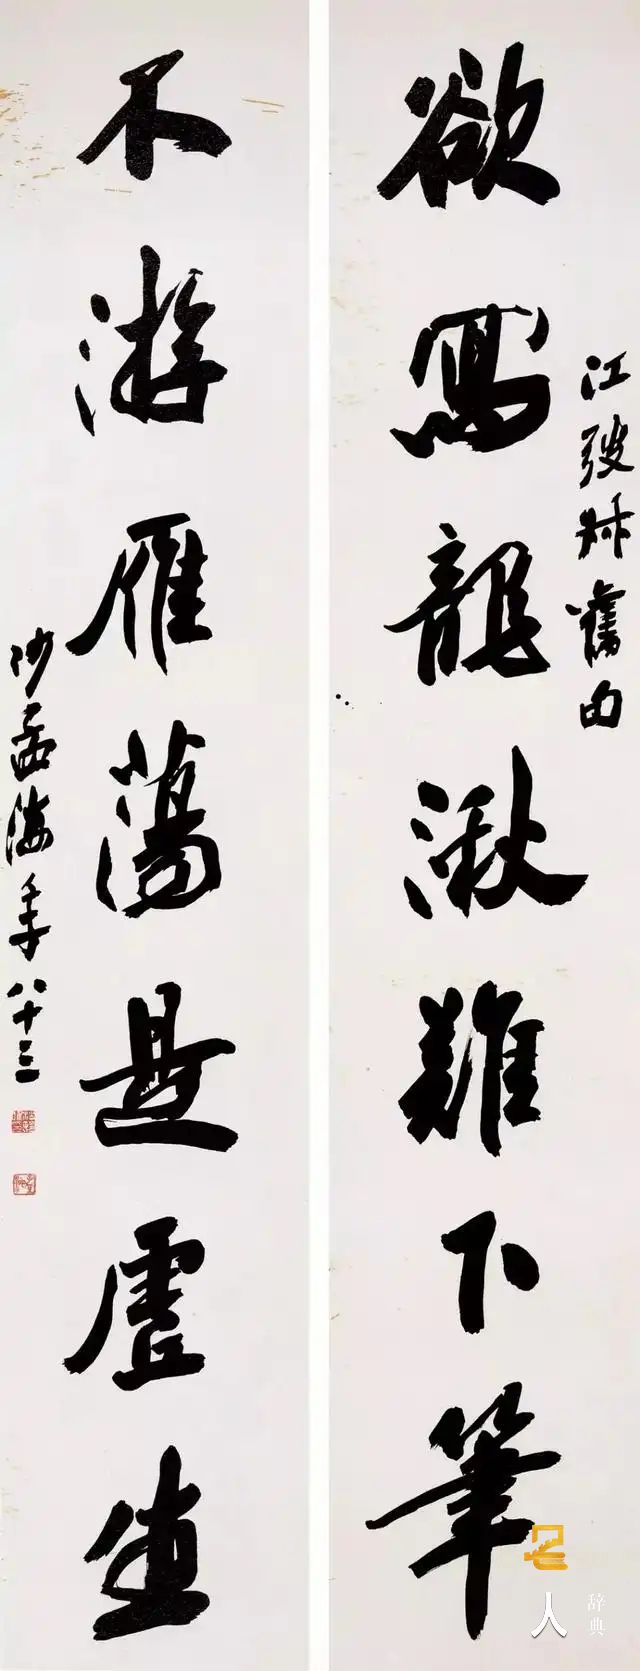 江弢叔舊句
欲寫龍湫難下筆
不游雁蕩是虛生
沙孟海年八十三
人
辞典